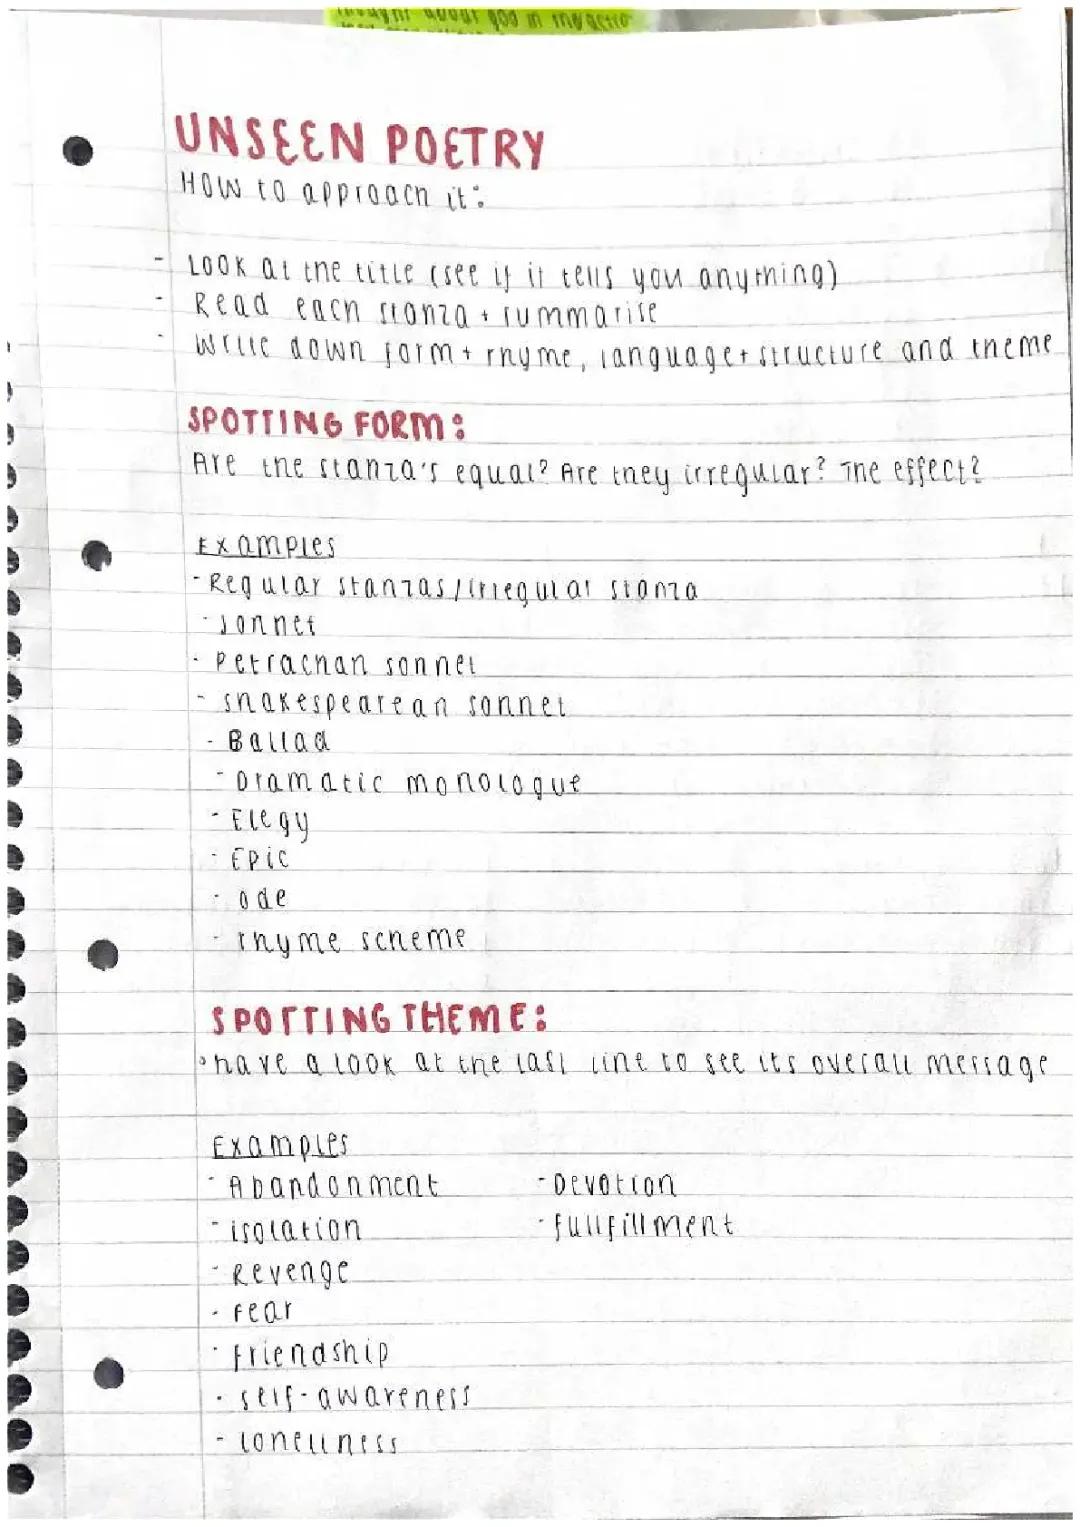 thought about god in the
UNSEEN POETRY
HOW to approach it:
- LOOK at the title (see if it tells you anything)
- Read each stanza + summarise
- write down form + rhyme, language + structure and theme
SPOTTING FORM:
Are the stanza's equal? Are they irregular? The effect?
Examples
- Regular stanzas / irregular stanza
- sonnet
- Petrachan sonnet
- shakespearean sonnet
- Ballad
- Dramatic monologue
- Elegy
- Epic
- ode
- rhyme scheme
SPOTTING THEME:
• have a look at the last line to see its overall message
Examples
- Abandonment - Devotion
- isolation - fullfillment
- Revenge
- fear
- friendship
- self-awareness
- loneliness